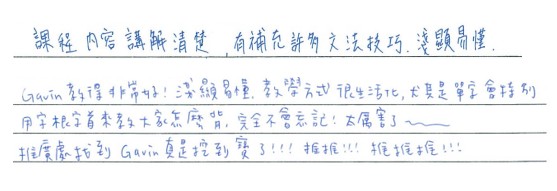 課程內容講解清楚,有補充許多文法技巧.淺顯易懂.
Gavin教得非常好!淺顯易懂.教學方式很生活化,尤其是單字會特別
用字根字首來教大家怎麼背,完全不會忘記!太厲害了~
推廣處找到 Gavin真是挖到寶了!!! 推推!!! 推推推!!!